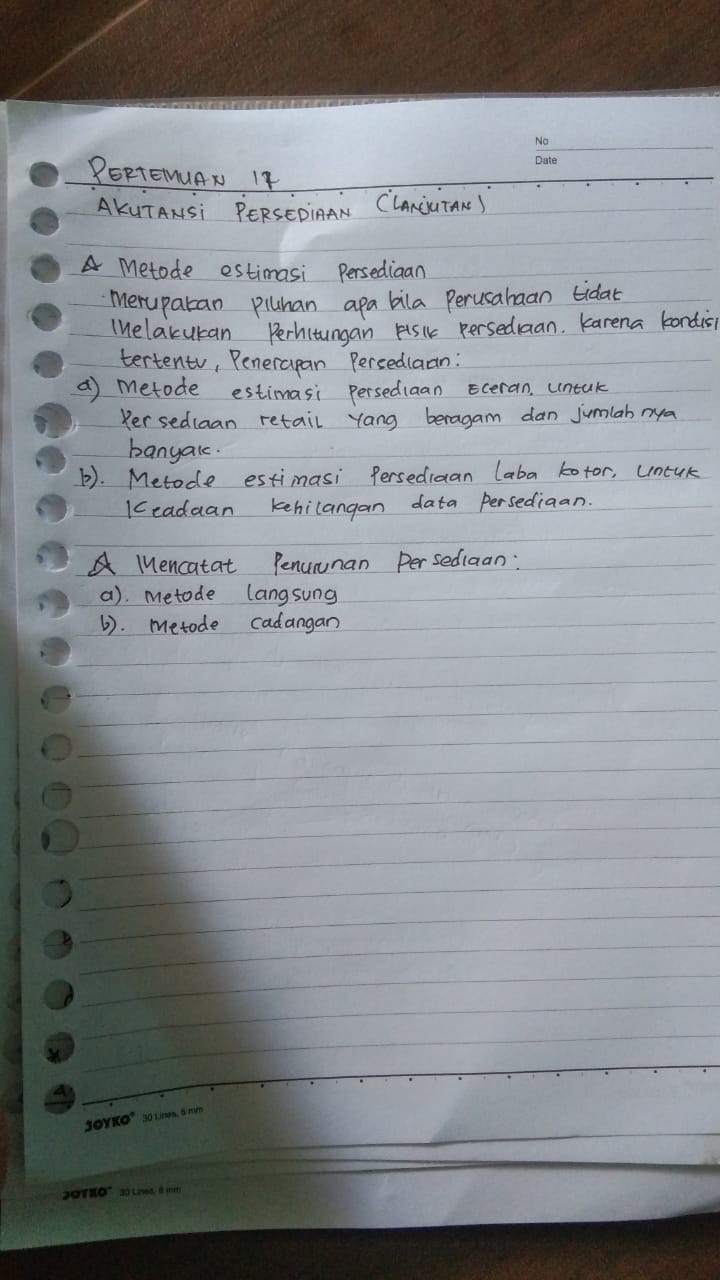 No
Date
PERTEMUAN 17
AKUTANSI PERSEDIAAN (LANJUTAN)
Metode estimasi Persediaan
Merupakan pilihan apa bila Perusahaan tidak
Melakukan Perhitungan FISIK Persediaan. karena kondisi
tertentu, Penerapan Persediaan:
a) Metode estimasi Persediaan Eceran, untuk
Persediaan retail yang beragam dan jumlahnya
banyak.
b). Metode estimasi Persediaan laba kotor, untuk
Keadaan kehilangan data Persediaan.
Mencatat Penurunan Persediaan:
a). Metode langsung
b). Metode cadangan
JOYKO 30 Lines, 8 mm
JOYKO 30 Lines, 8 mm